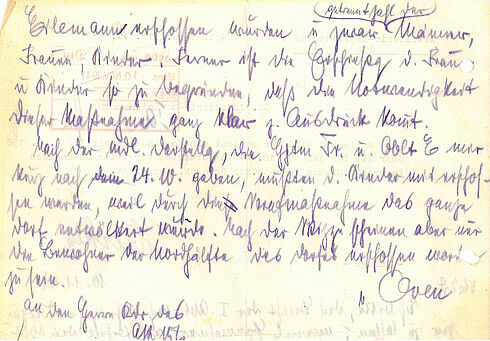 (getrennt Zahl der
Eilemann erschossen wurden u zwar Männer,
Frauen, Kinder. Ferner ist die Erschießg d. Frau
u Kinder so zu begründen, daß die Notwendigkeit
dieser Maßnahme ganz klar z. Ausdruck komt.
Nach der mdl. Darstellg, die Tr. u. Oblt E mir
kurz nach dem 24.10. gaben, mußten d. Kinder mit erschos-
sen werden, weil durch die Maßnahme das ganze
Dorf entvölkert würde. Nach der Skizze scheinen aber nur
die Bewohner der Nordhälfte des Dorfes erschossen word
zu sein.
Oven
An den Herrn Kdr. des